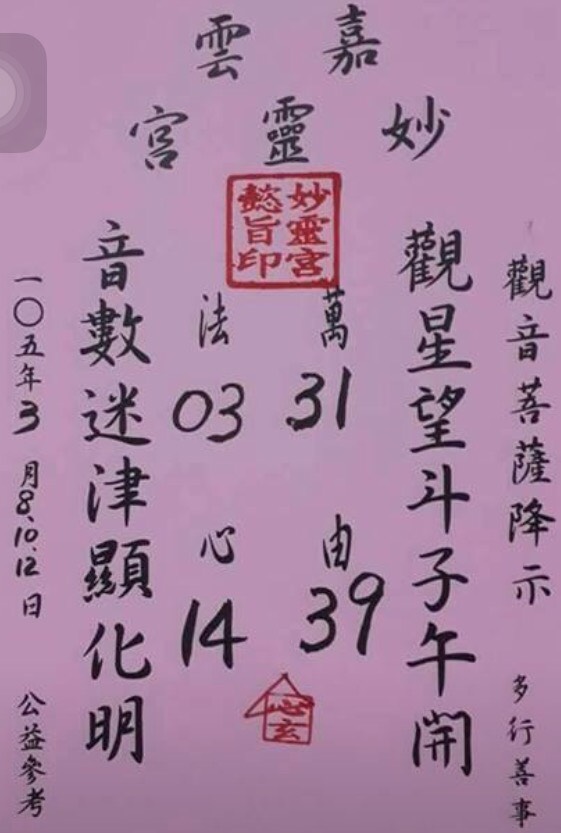 嘉雲
妙靈宮
妙靈宮
懿旨印
觀音菩薩降示 多行善事
觀星望斗子午開
萬 法
31 03
由 心
39 14
心玄
音數迷津顯化明
一〇五年3月8.10.12日 公益參考